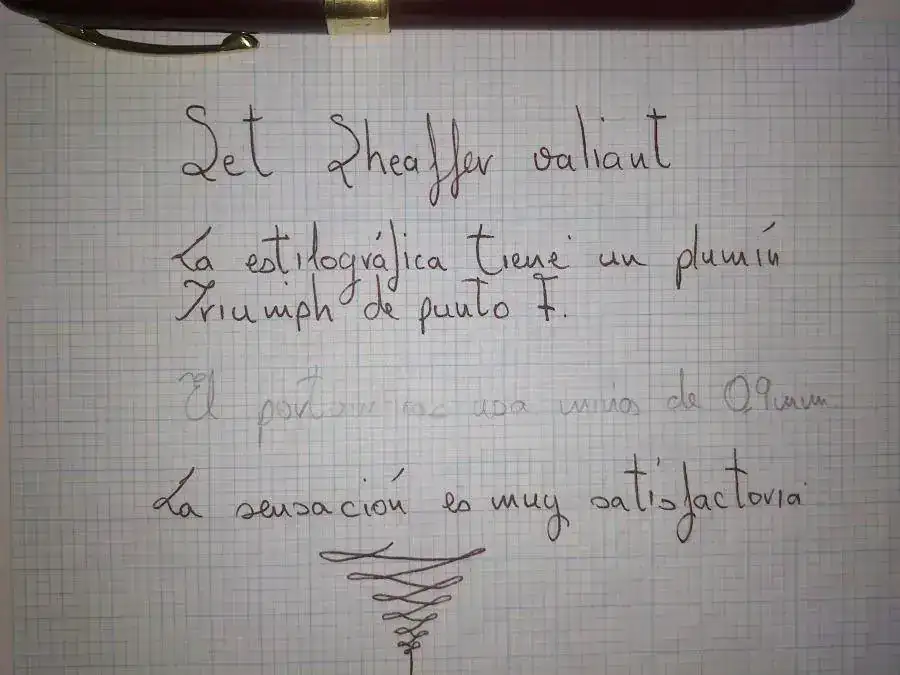 Set Sheaffer valiant
La estilográfica tiene un plumín
Triumph de punto F.
El portaminas usa minas de 0.9mm
La sensación es muy satisfactoria